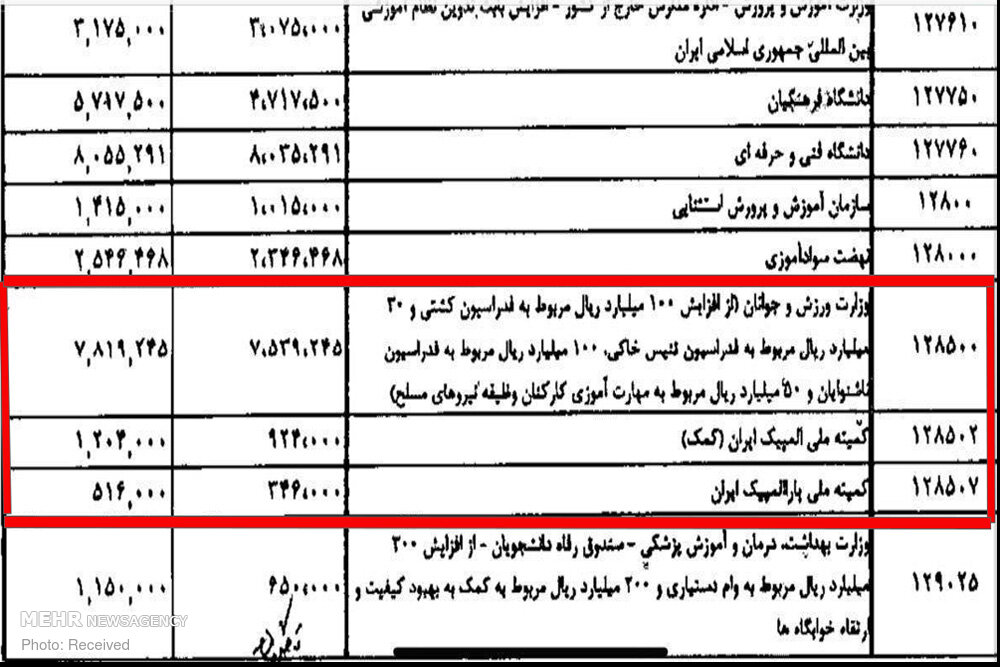 ۱۲۷۶۱۰
وزارت آموزش و پرورش - اداره مدارس خارج از کشور - افزایش بابت تدوین نظام آموزشی
بین المللی جمهوری اسلامی ایران
۳،۰۷۵،۰۰۰
۳,۱۷۵,۰۰۰
۱۲۷۷۵۰
دانشگاه فرهنگیان
۴،۷۱۷،۵۰۰
۵,۷۱۷,۵۰۰
۱۲۷۷۶۰
دانشگاه فنی و حرفه ای
۸،۰۳۵،۲۹۱
۸,۰۵۵,۲۹۱
۱۲۸۰۰
سازمان آموزش و پرورش استثنایی
۱،۰۱۵،۰۰۰
۱,۴۱۵,۰۰۰
۱۲۸۰۰۰
نهضت سوادآموزی
۲،۳۴۶،۴۶۸
۲,۵۴۶,۴۶۸
۱۲۸۵۰۰
وزارت ورزش و جوانان (از افزایش ۱۰۰ میلیارد ریال مربوط به فدراسیون کشتی و ۳۰
میلیارد ریال مربوط به فدراسیون تنیس خاکی، ۱۰۰ میلیارد ریال مربوط به فدراسیون
ناشنوایان و ۵۰ میلیارد ریال مربوط به مهارت آموزی کارکنان وظیفه نیروهای مسلح)
۷،۵۳۹،۲۴۵
۷,۸۱۹,۲۴۵
۱۲۸۵۰۲
کمیته ملی المپیک ایران (کمک)
۹۲۴،۰۰۰
۱,۲۰۴,۰۰۰
۱۲۸۵۰۷
کمیته ملی پارالمپیک ایران
۳۴۶،۰۰۰
۵۱۶,۰۰۰
۱۲۹۰۲۵
وزارت بهداشت، درمان و آموزش پزشکی - صندوق رفاه دانشجویان - از افزایش ۳۰۰
میلیارد ریال مربوط به وام دستیاری و ۲۰۰ میلیارد ریال مربوط به کمک به بهبود کیفیت و
ارتقاء خوابگاه ها
۶۵۰،۰۰۰
۱,۱۵۰,۰۰۰
MEHR NEWSAGENCY
Photo: Received